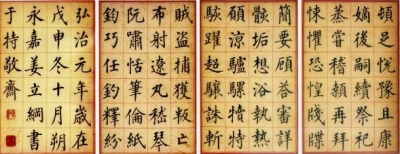 頓足悅豫且康
嫡後嗣續祭祀
蒸嘗稽顙再拜
悚懼恐惶牋牒
簡要顧答審詳
骸垢想浴執熱
願涼驢騾犢特
駭躍超驤誅斬
賊盜捕獲叛亡
布射遼丸嵇琴
阮嘯恬筆倫紙
鈞巧任釣釋紛
弘治元年歲在
戊申冬十月朔
永嘉姜立綱書
于特敬齋